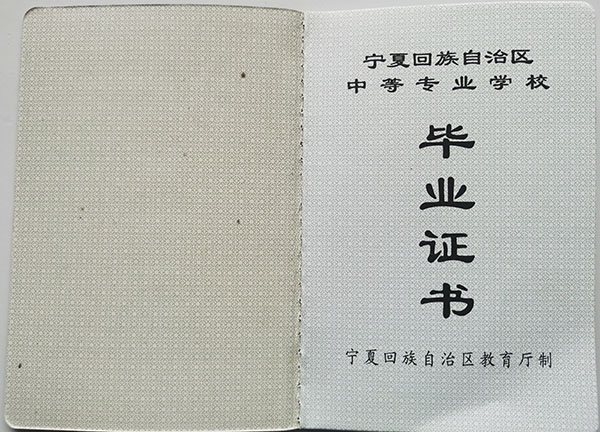 宁夏回族自治区
中等专业学校
毕业证书
宁夏回族自治区教育厅制